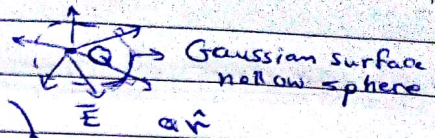 Q → Gaussian surface
hollow sphere
E̅ α r̂